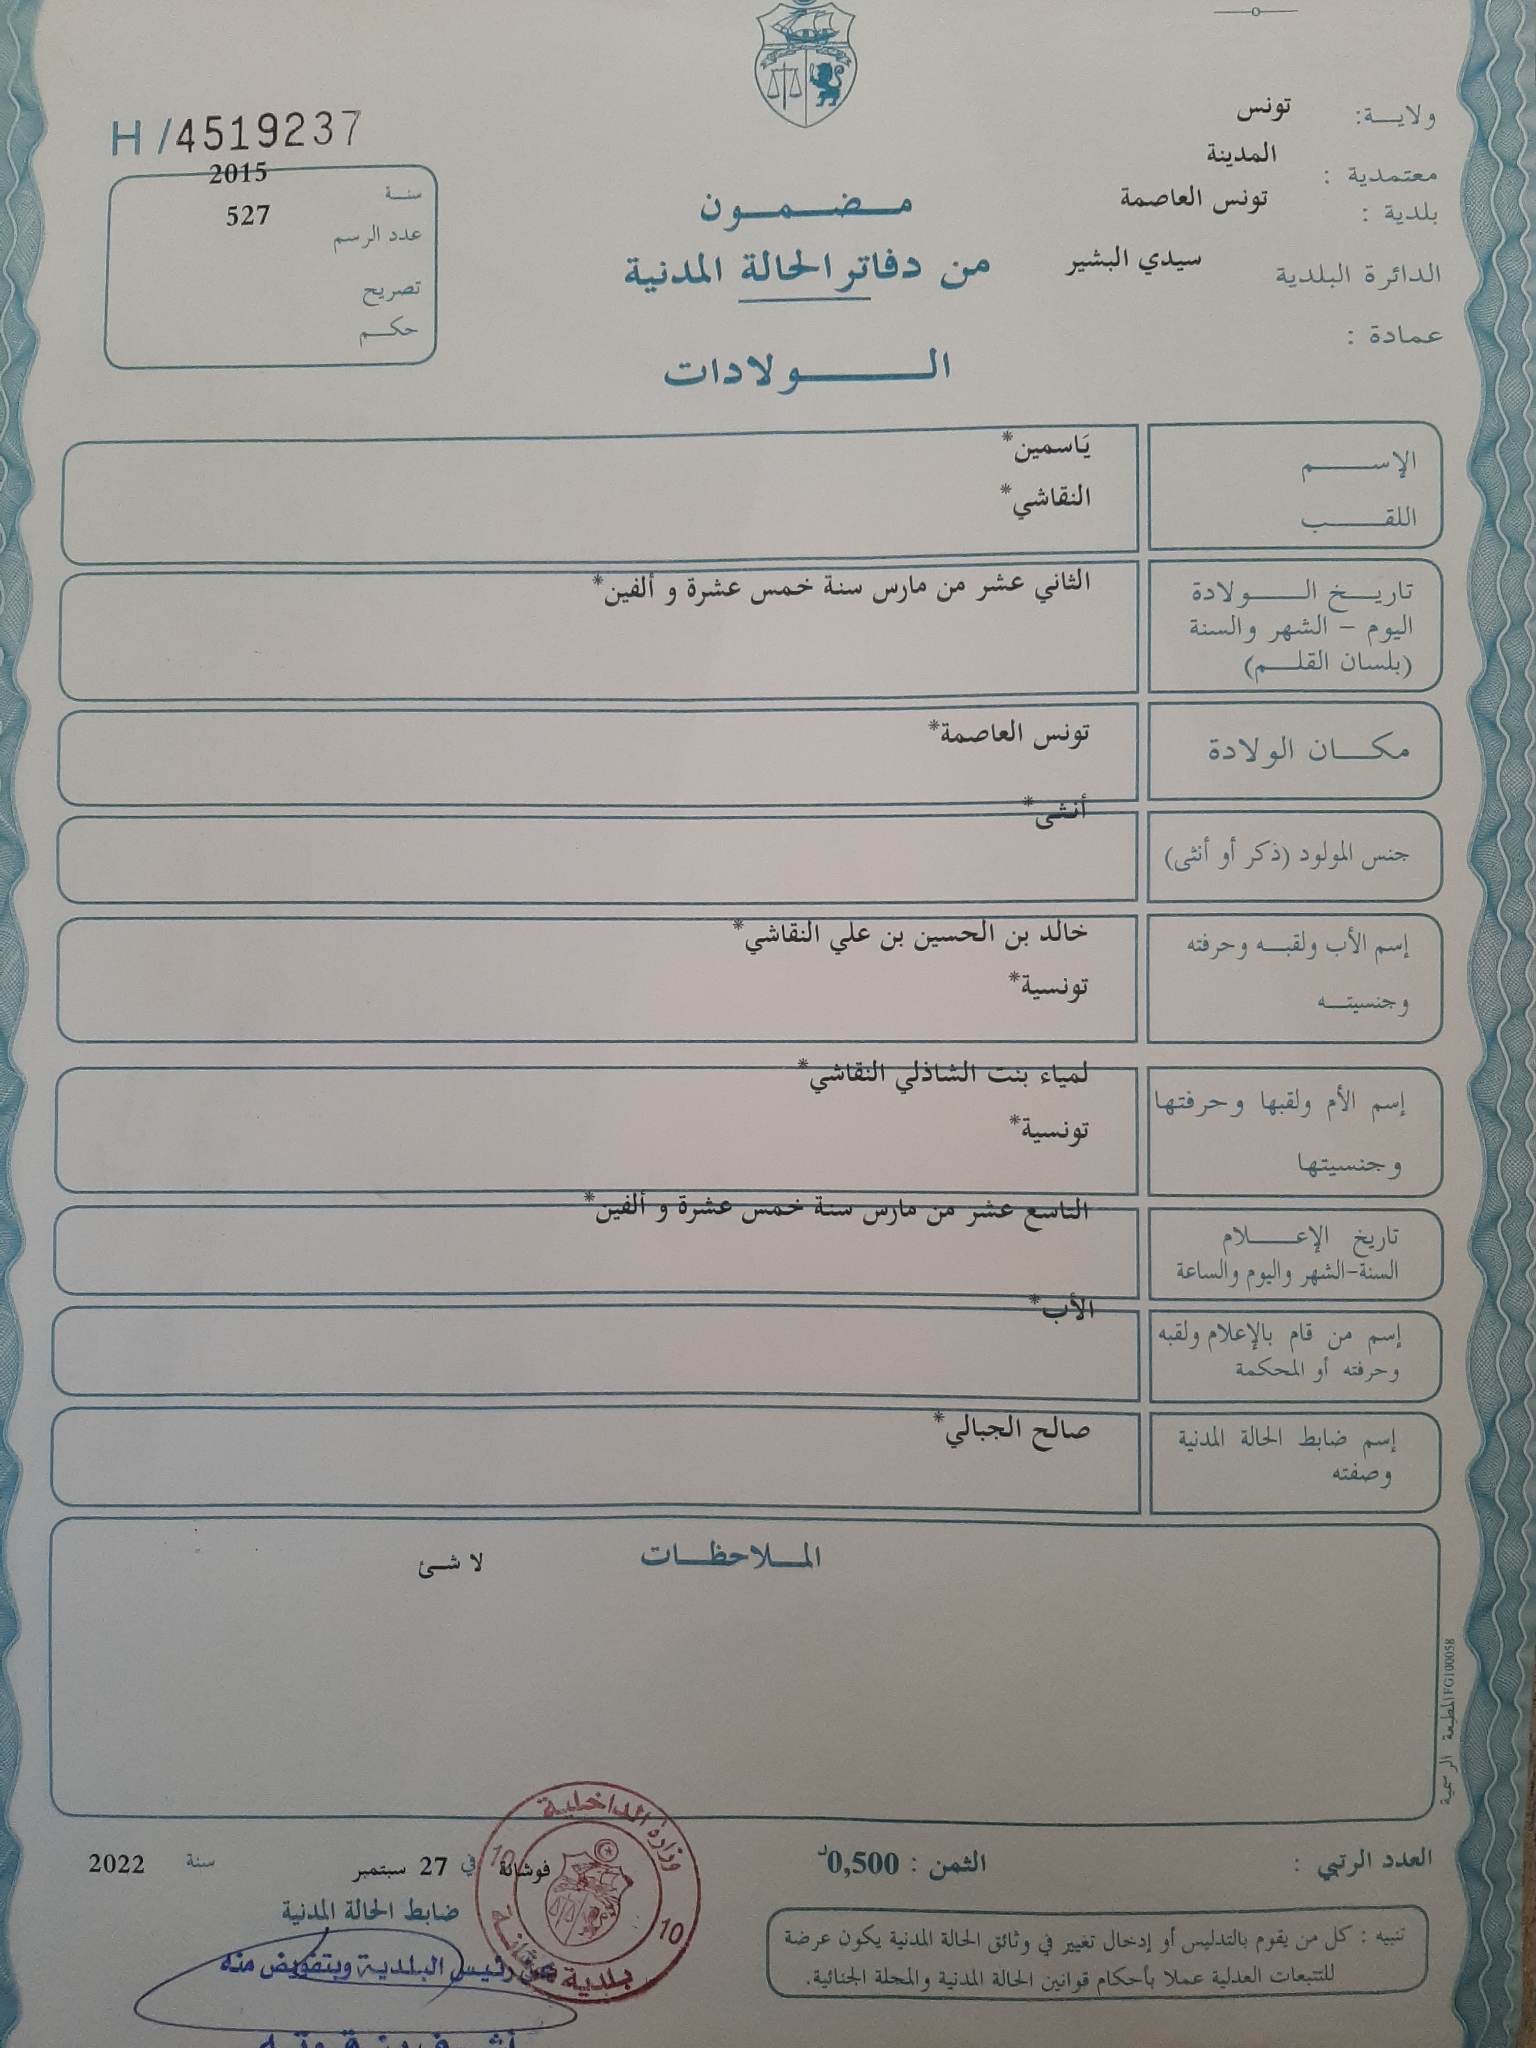 ولاية: تونس
معتمدية : المدينة
بلدية : تونس العاصمة
الدائرة البلدية سيدي البشير
عمادة :
مضمون
من دفاتر الحالة المدنية
الولادات
H /4519237
سنة 2015
عدد الرسم 527
تصريح
حكم
الإسم يَاسمين*
اللقب النقاشي*
تاريخ الولادة الثاني عشر من مارس سنة خمس عشرة و ألفين*
اليوم – الشهر والسنة
(بلسان القلم)
مكان الولادة تونس العاصمة*
جنس المولود (ذكر أو أنثى) أنثى*
إسم الأب ولقبه وحرفته خالد بن الحسين بن علي النقاشي*
وجنسيته تونسية*
إسم الأم ولقبها وحرفتها لمياء بنت الشاذلي النقاشي*
وجنسيتها تونسية*
تاريخ الإعلام التاسع عشر من مارس سنة خمس عشرة و ألفين*
السنة-الشهر واليوم والساعة
إسم من قام بالإعلام ولقبه الأب*
وحرفته أو المحكمة
إسم ضابط الحالة المدنية صالح الجبالي*
وصفته
الملاحظات
لا شئ
المطبعة الرسمية FG100058
العدد الرتبي :
الثمن : 0,500د
فوشانة في 27 سبتمبر سنة 2022
ضابط الحالة المدنية
عن رئيس البلدية وبتفويض منه
وزارة الداخلية
10
10
بلدية فوشانة
تنبيه : كل من يقوم بالتدليس أو إدخال تغيير في وثائق الحالة المدنية يكون عرضة
للتتبعات العدلية عملا بأحكام قوانين الحالة المدنية والمجلة الجنائية.